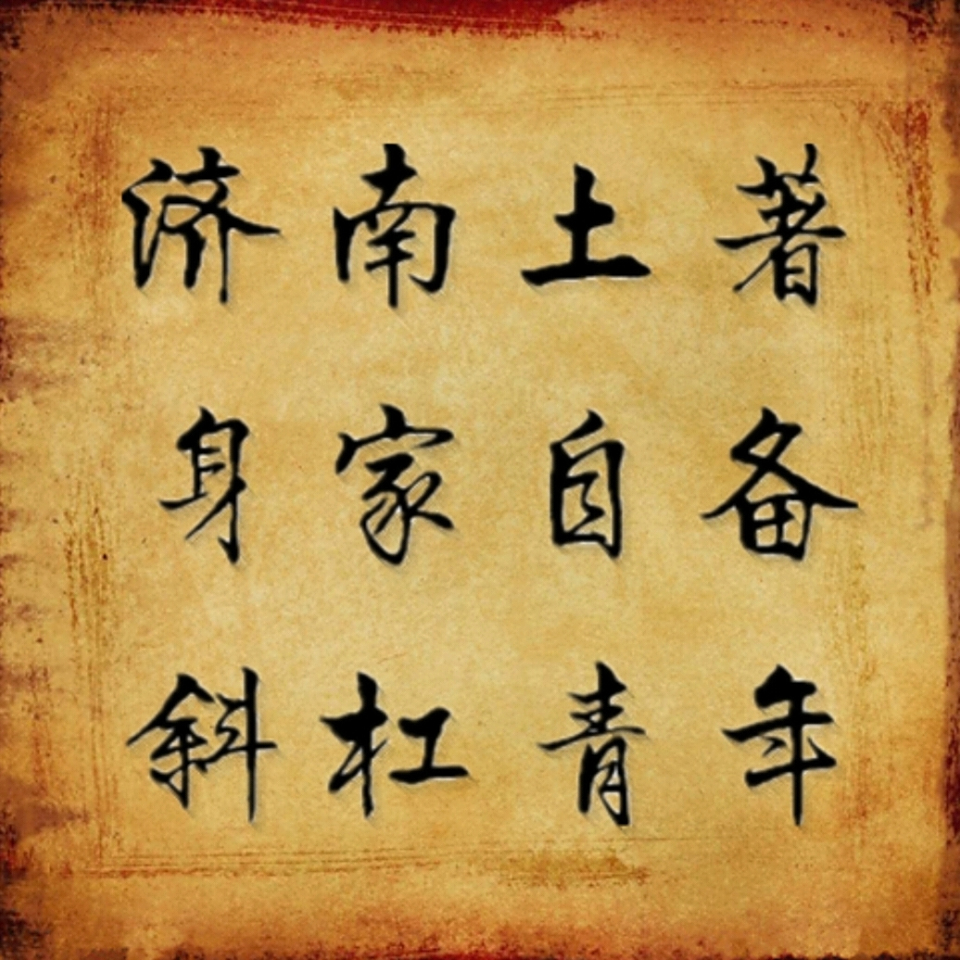 济南土著
身家自备
斜杠青年